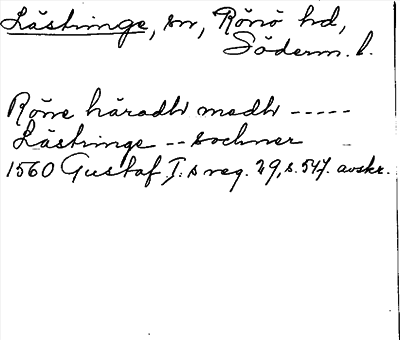 Lästringe, sn, Rönö hd,
Söderm. l.
Röne häradh medh -----
Lästringe -- sochner
1560 Gustaf I.s reg. 29, s. 547. avskr.